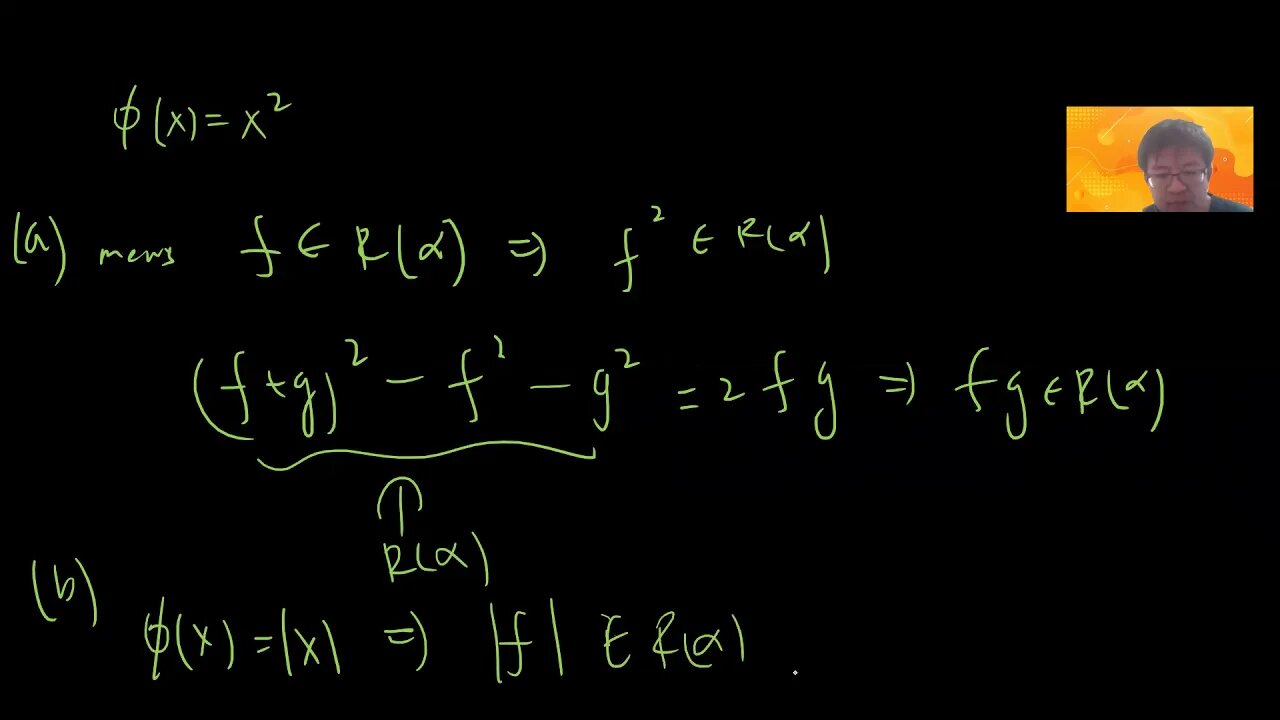 ϕ(x) = x²
(a) mens f ∈ R(α) ⇒ f² ∈ R(α)
(f+g)² − f² − g² = 2fg ⇒ fg ∈ R(α)
⇑
R(α)
(b)
ϕ(x) = |x| ⇒ |f| ∈ R(α)